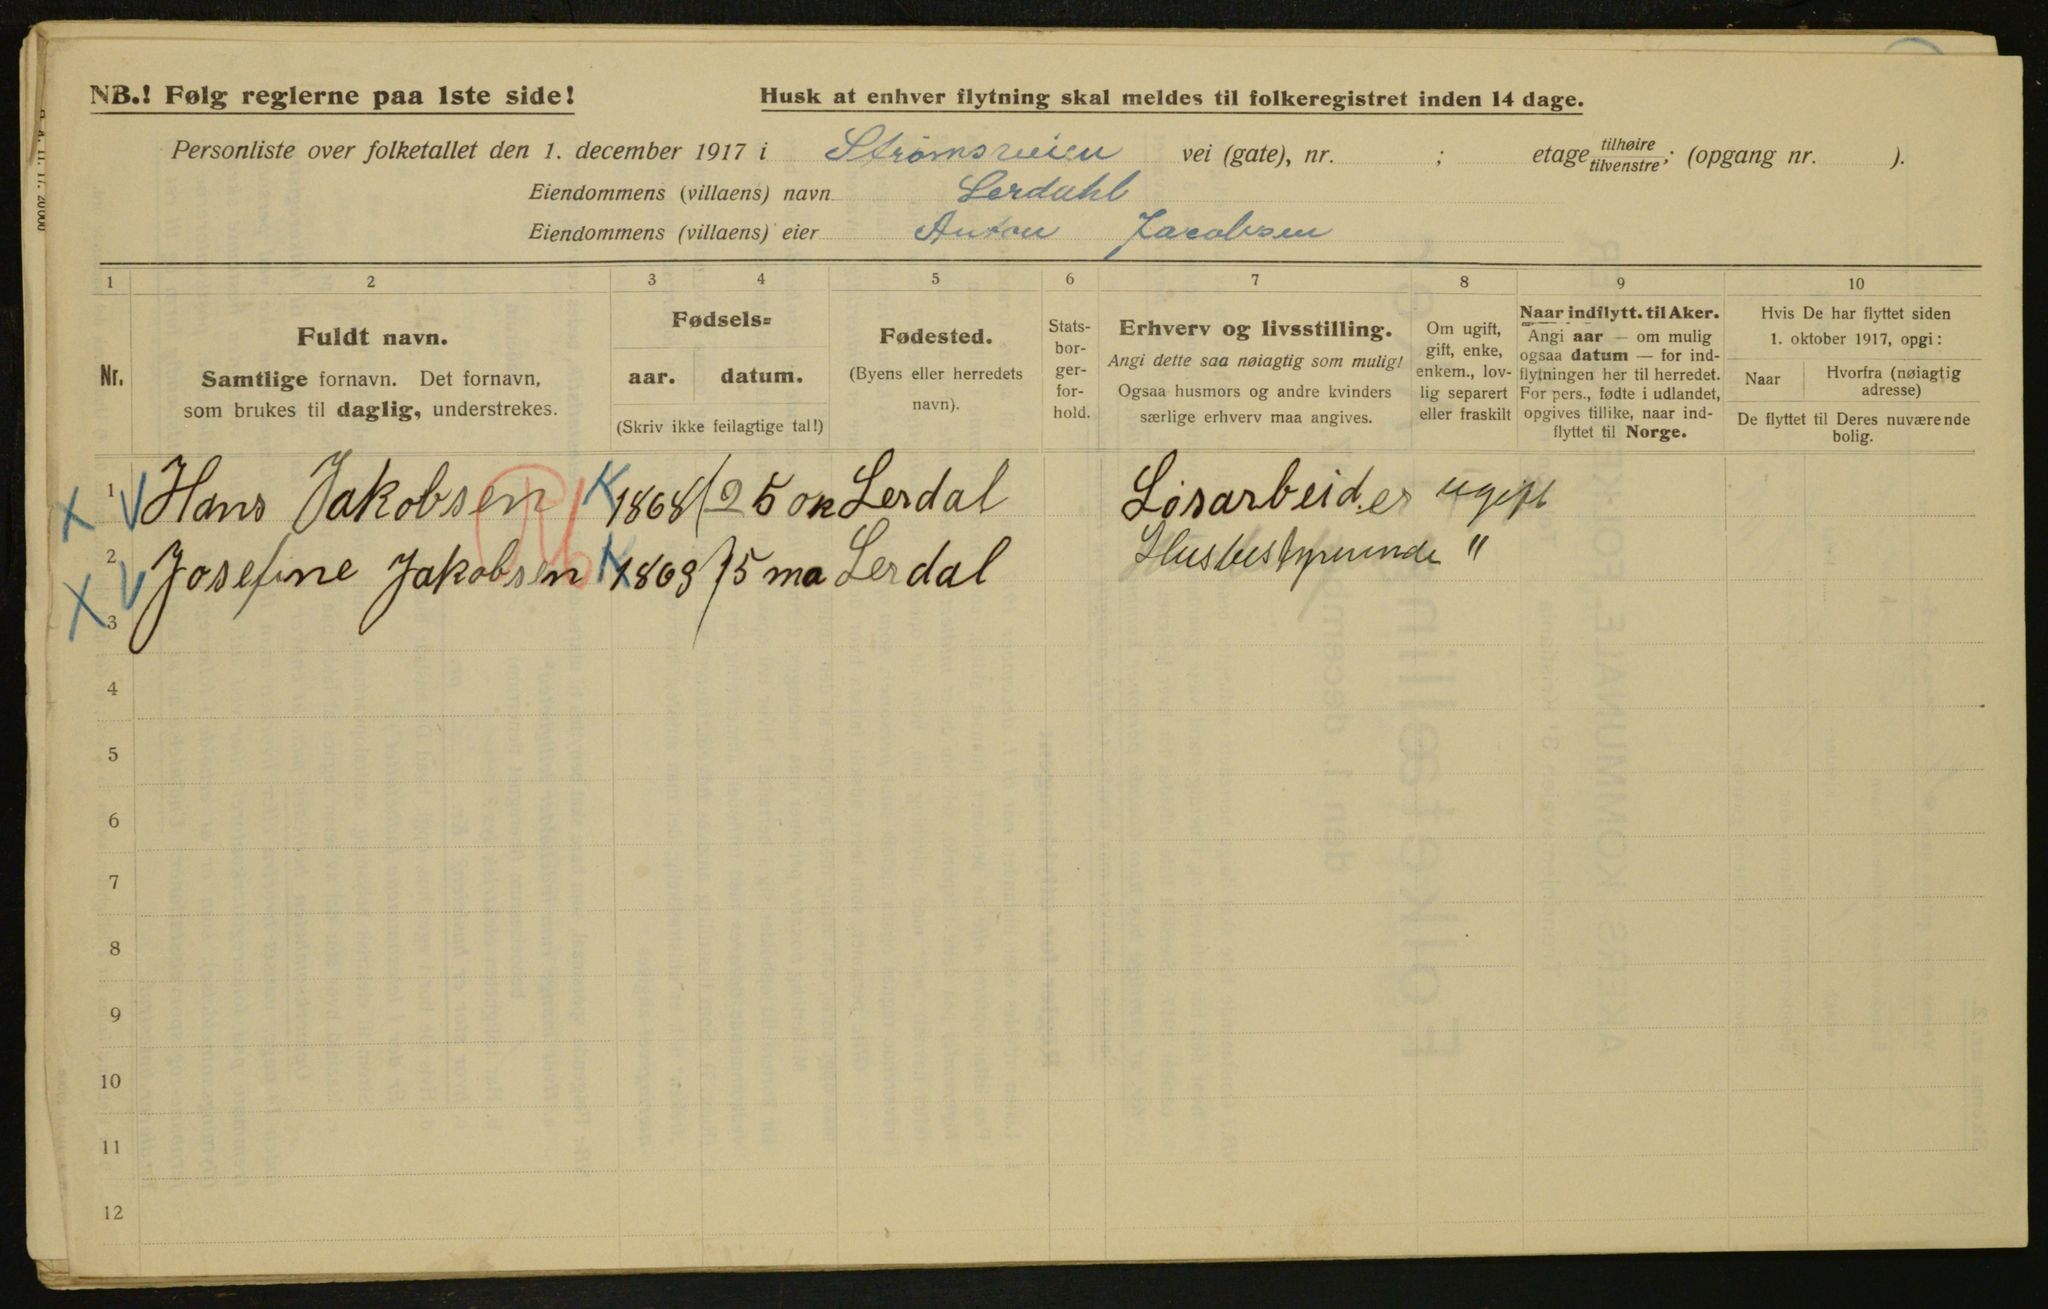 NB.! Følg reglerne paa 1ste side! Husk at enhver flytning skal meldes til folkeregistret inden 14 dage.
Personliste over folketallet den 1. december 1917 i Strømsveien vei (gate), nr. ; etage tilhøire tilvenstre; (opgang nr. ).
Eiendommens (villaens) navn Lerdahl
Eiendommens (villaens) eier Anton Jacobsen
1 2 3 4 5 6 7 8 9 10
Nr.
Fuldt navn.
Samtlige fornavn. Det fornavn,
som brukes til daglig, understrekes.
Fødsels=
aar. datum.
(Skriv ikke feilagtige tal!)
Fødested.
(Byens eller herredets
navn).
Stats-
bor-
ger-
for-
hold.
Erhverv og livsstilling.
Angi dette saa nøiagtig som mulig!
Ogsaa husmors og andre kvinders
særlige erhverv maa angives.
Om ugift,
gift, enke,
enkem., lov-
lig separert
eller fraskilt
Naar indflytt. til Aker.
Angi aar — om mulig
ogsaa datum — for ind-
flytningen her til herredet.
For pers., fødte i udlandet,
opgives tillike, naar ind-
flyttet til Norge.
Hvis De har flyttet siden
1. oktober 1917, opgi:
Naar Hvorfra (nøiagtig
adresse)
De flyttet til Deres nuværende
bolig.
X V 1 Hans Jakobsen K 1868 25 ok Lerdal Løsarbeider ugift
X V 2 Josefine Jakobsen K 1869 15 ma Lerdal Husbestyrerinde "
3
4
5
6
7
8
9
10
11
12